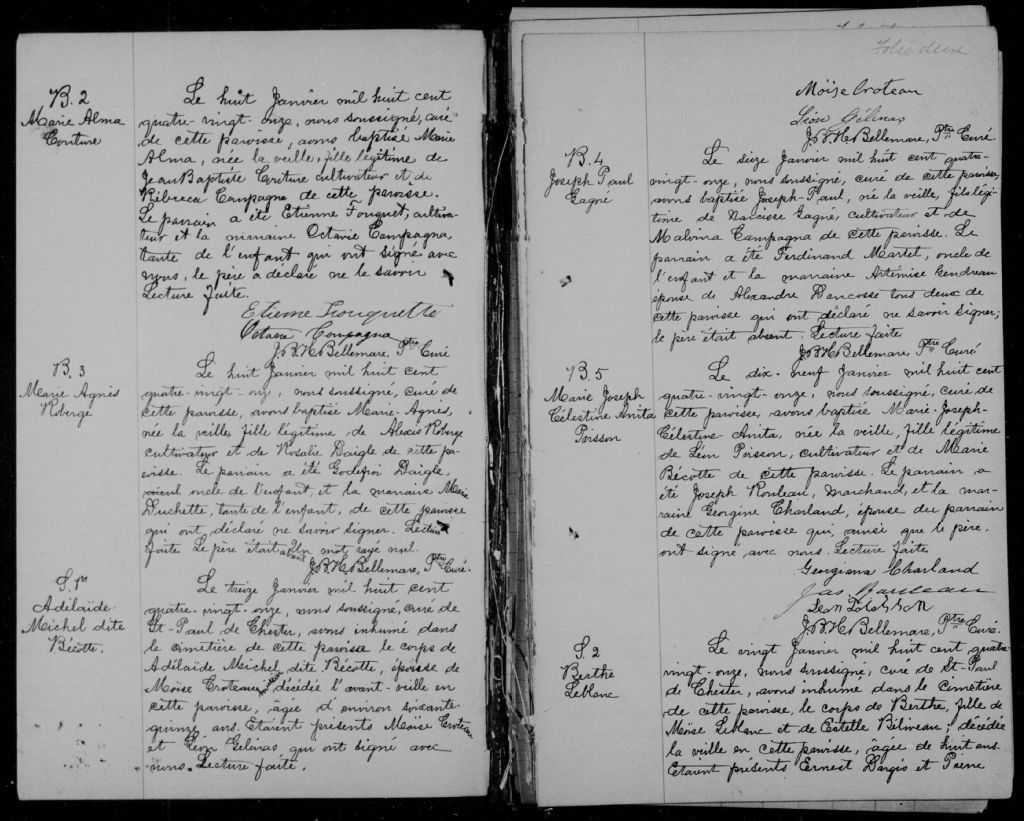 B. 2
Marie Alma
Couture
Le huit Janvier mil huit cent
quatre-vingt-onze, nous soussigné, curé
de cette paroisse, avons baptisé Marie
Alma, née la veille, fille légitime de
Jean Baptiste Couture cultivateur et de
Rébecca Campagna de cette paroisse.
Le parrain a été Etienne Fouquet, cultiva-
teur et la marraine Octavie Campagna,
tante de l'enfant qui ont signé avec
nous, le père a déclaré ne le savoir
Lecture faite.
Etienne Fouquette
Octavie Campagna
J.B.H. Bellemare, Ptre Curé
B. 3
Marie Agnès
Roberge
Le huit Janvier mil huit cent
quatre-vingt-onze, nous soussigné, curé de
cette paroisse, avons baptisé Marie-Agnès,
née la veille, fille légitime de Alexis Roberge
cultivateur et de Rosalie Daigle de cette pa-
roisse. Le parrain a été Godefroi Daigle,
oncle de l'enfant, et la marraine Marie
Duchette, tante de l'enfant, de cette paroisse
qui ont déclaré ne savoir signer. Lecture
faite. Le père était absent Un mot rayé nul.
J.B.H. Bellemare, Ptre Curé.
S. 1re
Adélaïde
Michel dite
Bécotte.
Le treize Janvier mil huit cent
quatre-vingt-onze, nous soussigné, curé de
St-Paul de Chester, avons inhumé dans
le cimetière de cette paroisse le corps de
Adélaïde Michel dite Bécotte, épouse de
Moïse Croteau, décédée l'avant-veille en
cette paroisse, âgée d'environ soixante-
quinze ans. Etaient présents Moïse Croteau
et Léon Gélinas qui ont signé avec
nous. Lecture faite.
Folio deux
Moïse Croteau
Léon Gélinas
J.B.H. Bellemare, Ptre Curé
B. 4
Joseph Paul
Gagné
Le seize Janvier mil huit cent quatre-
vingt-onze, nous soussigné, curé de cette paroisse,
avons baptisé Joseph-Paul, né la veille, fils légi-
time de Narcisse Gagné, cultivateur et de
Malvina Campagna de cette paroisse. Le
parrain a été Ferdinand Martel, oncle de
l'enfant et la marraine Artémise Gendreau
épouse de Alexandre Dancosse tous deux de
cette paroisse qui ont déclaré ne savoir signer;
le père était absent. Lecture faite
J.B.H. Bellemare, Ptre Curé
B. 5
Marie Joseph
Célestine Anita
Poisson
Le dix-neuf Janvier mil huit cent
quatre-vingt-onze, nous soussigné, curé de
cette paroisse, avons baptisé Marie-Joseph-
Célestine-Anita, née la veille, fille légitime
de Léon Poisson, cultivateur et de Marie
Bécotte de cette paroisse. Le parrain a
été Joseph Rouleau, marchand, et la mar-
raine Georgine Charland, épouse du parrain
de cette paroisse qui, ainsi que le père,
ont signé avec nous. Lecture faite
Georgiana Charland
Jos Rouleau
Leon
J.B.H. Bellemare, Ptre Curé.
S. 2
Berthe
Leblanc
Le vingt Janvier mil huit cent quatre-
vingt-onze, nous soussigné, curé de St-Paul
de Chester, avons inhumé dans le cimetière
de cette paroisse, le corps de Berthe, fille de
Moïse Leblanc et de Estelle Béliveau, décédée
la veille en cette paroisse, âgée de huit ans.
Etaient présents Ernest Dargis et Pierre